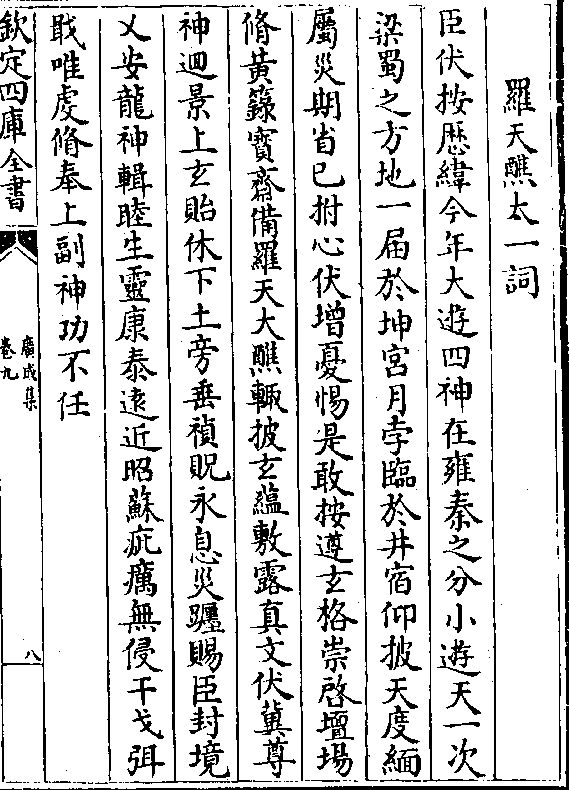 羅天醮太一詞
臣伏按歴緯今年大遊四神在雍秦之分小遊天一次
梁蜀之方地一届於坤宫月孛臨於井宿仰披天度緬
屬災期省已拊心伏增憂惕是敢按遵玄格崇啓壇場
脩黄籙寳齋備羅天大醮輙披玄藴敷露真文伏冀尊
神迴景上玄貽休下土旁垂禎貺永息災躔賜臣封境
乂安龍神輯睦生靈康泰逺近昭蘇疵癘無侵干戈弭
戢唯虔脩奉上副神功不任
欽定四庫全書
廣成集
卷九
八